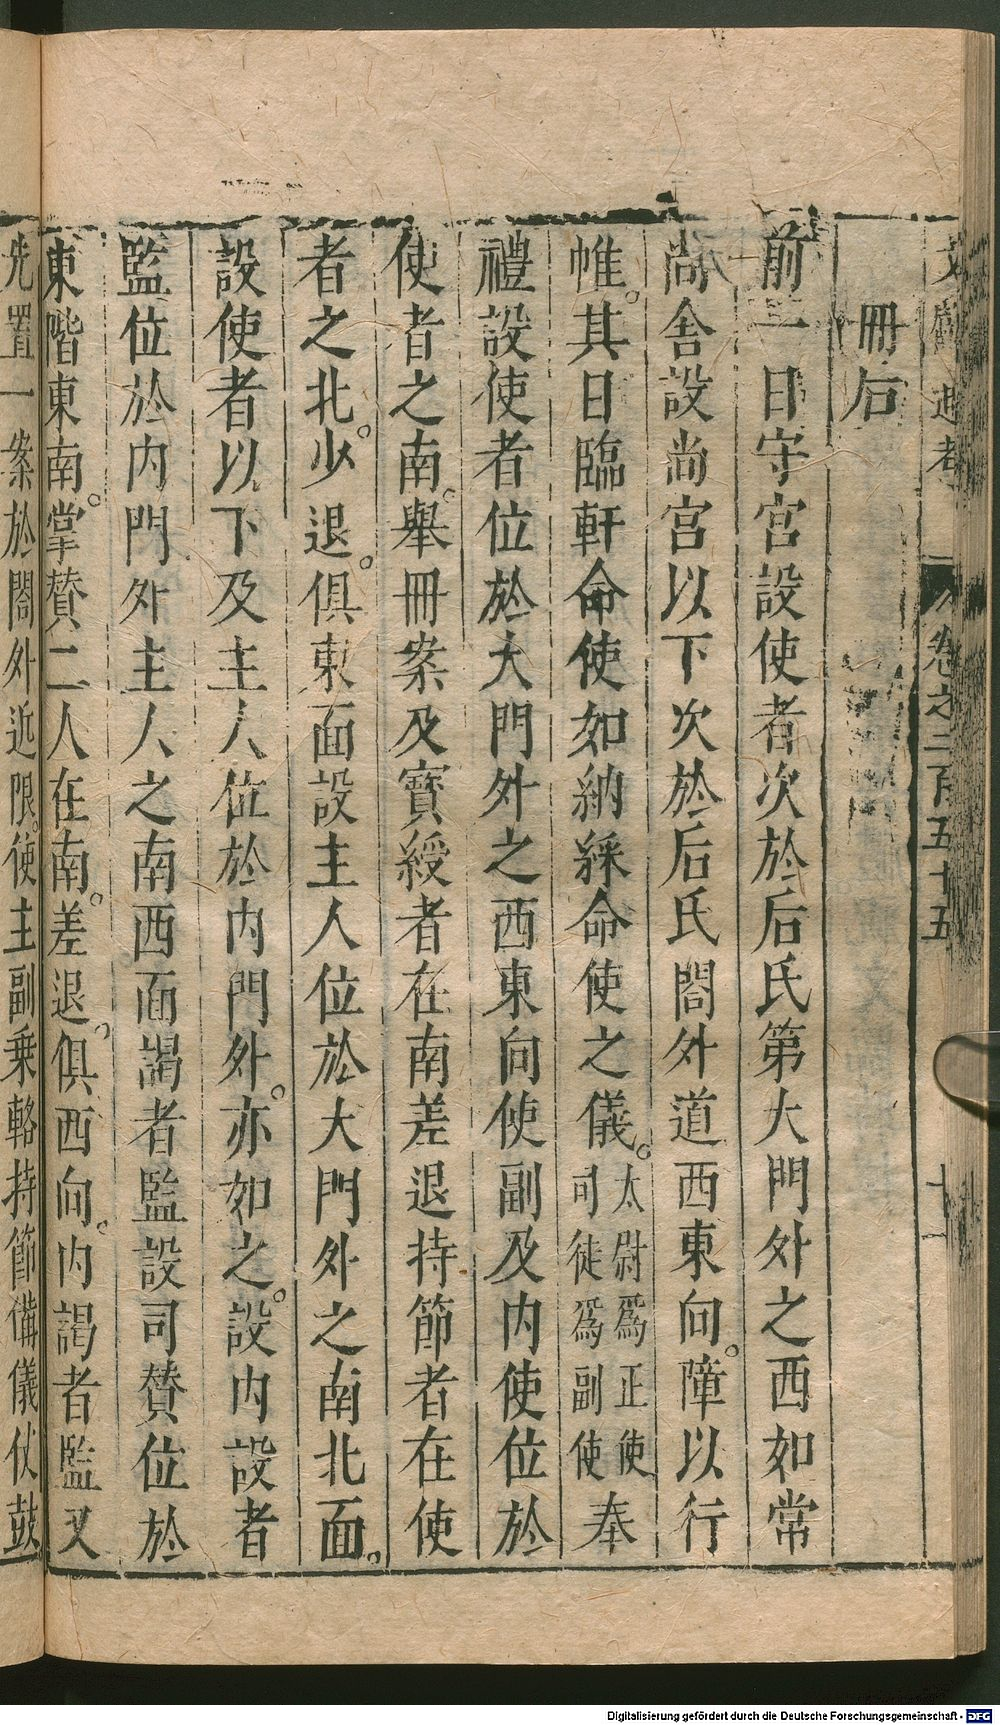 文獻通考 卷之二百五十五 十一
冊后
前一日守宮設使者次於后氏第大門外之西如常
尚舍設尚宮以下次於后氏閤外道西東向。障以行
帷。其日臨軒命使如納綵命使之儀。太尉爲正使司徒爲副使奉
禮設使者位於大門外之西東向使副及內使位於
使者之南。舉冊案及寶綬者在南差退持節者在使
者之北。少退。俱東面設主人位於大門外之南北面。
設使者以下及主人位於內門外。亦如之。設內設者
監位於內門外主人之南西面謁者監設司贊位於
東階東南。掌贊二人在南。差退。俱西向。內謁者監又
先置一案於閤外近限。使主副乗輅持節備儀仗鼓
Digitalisierung gefördert durch die Deutsche Forschungsgemeinschaft - DFG